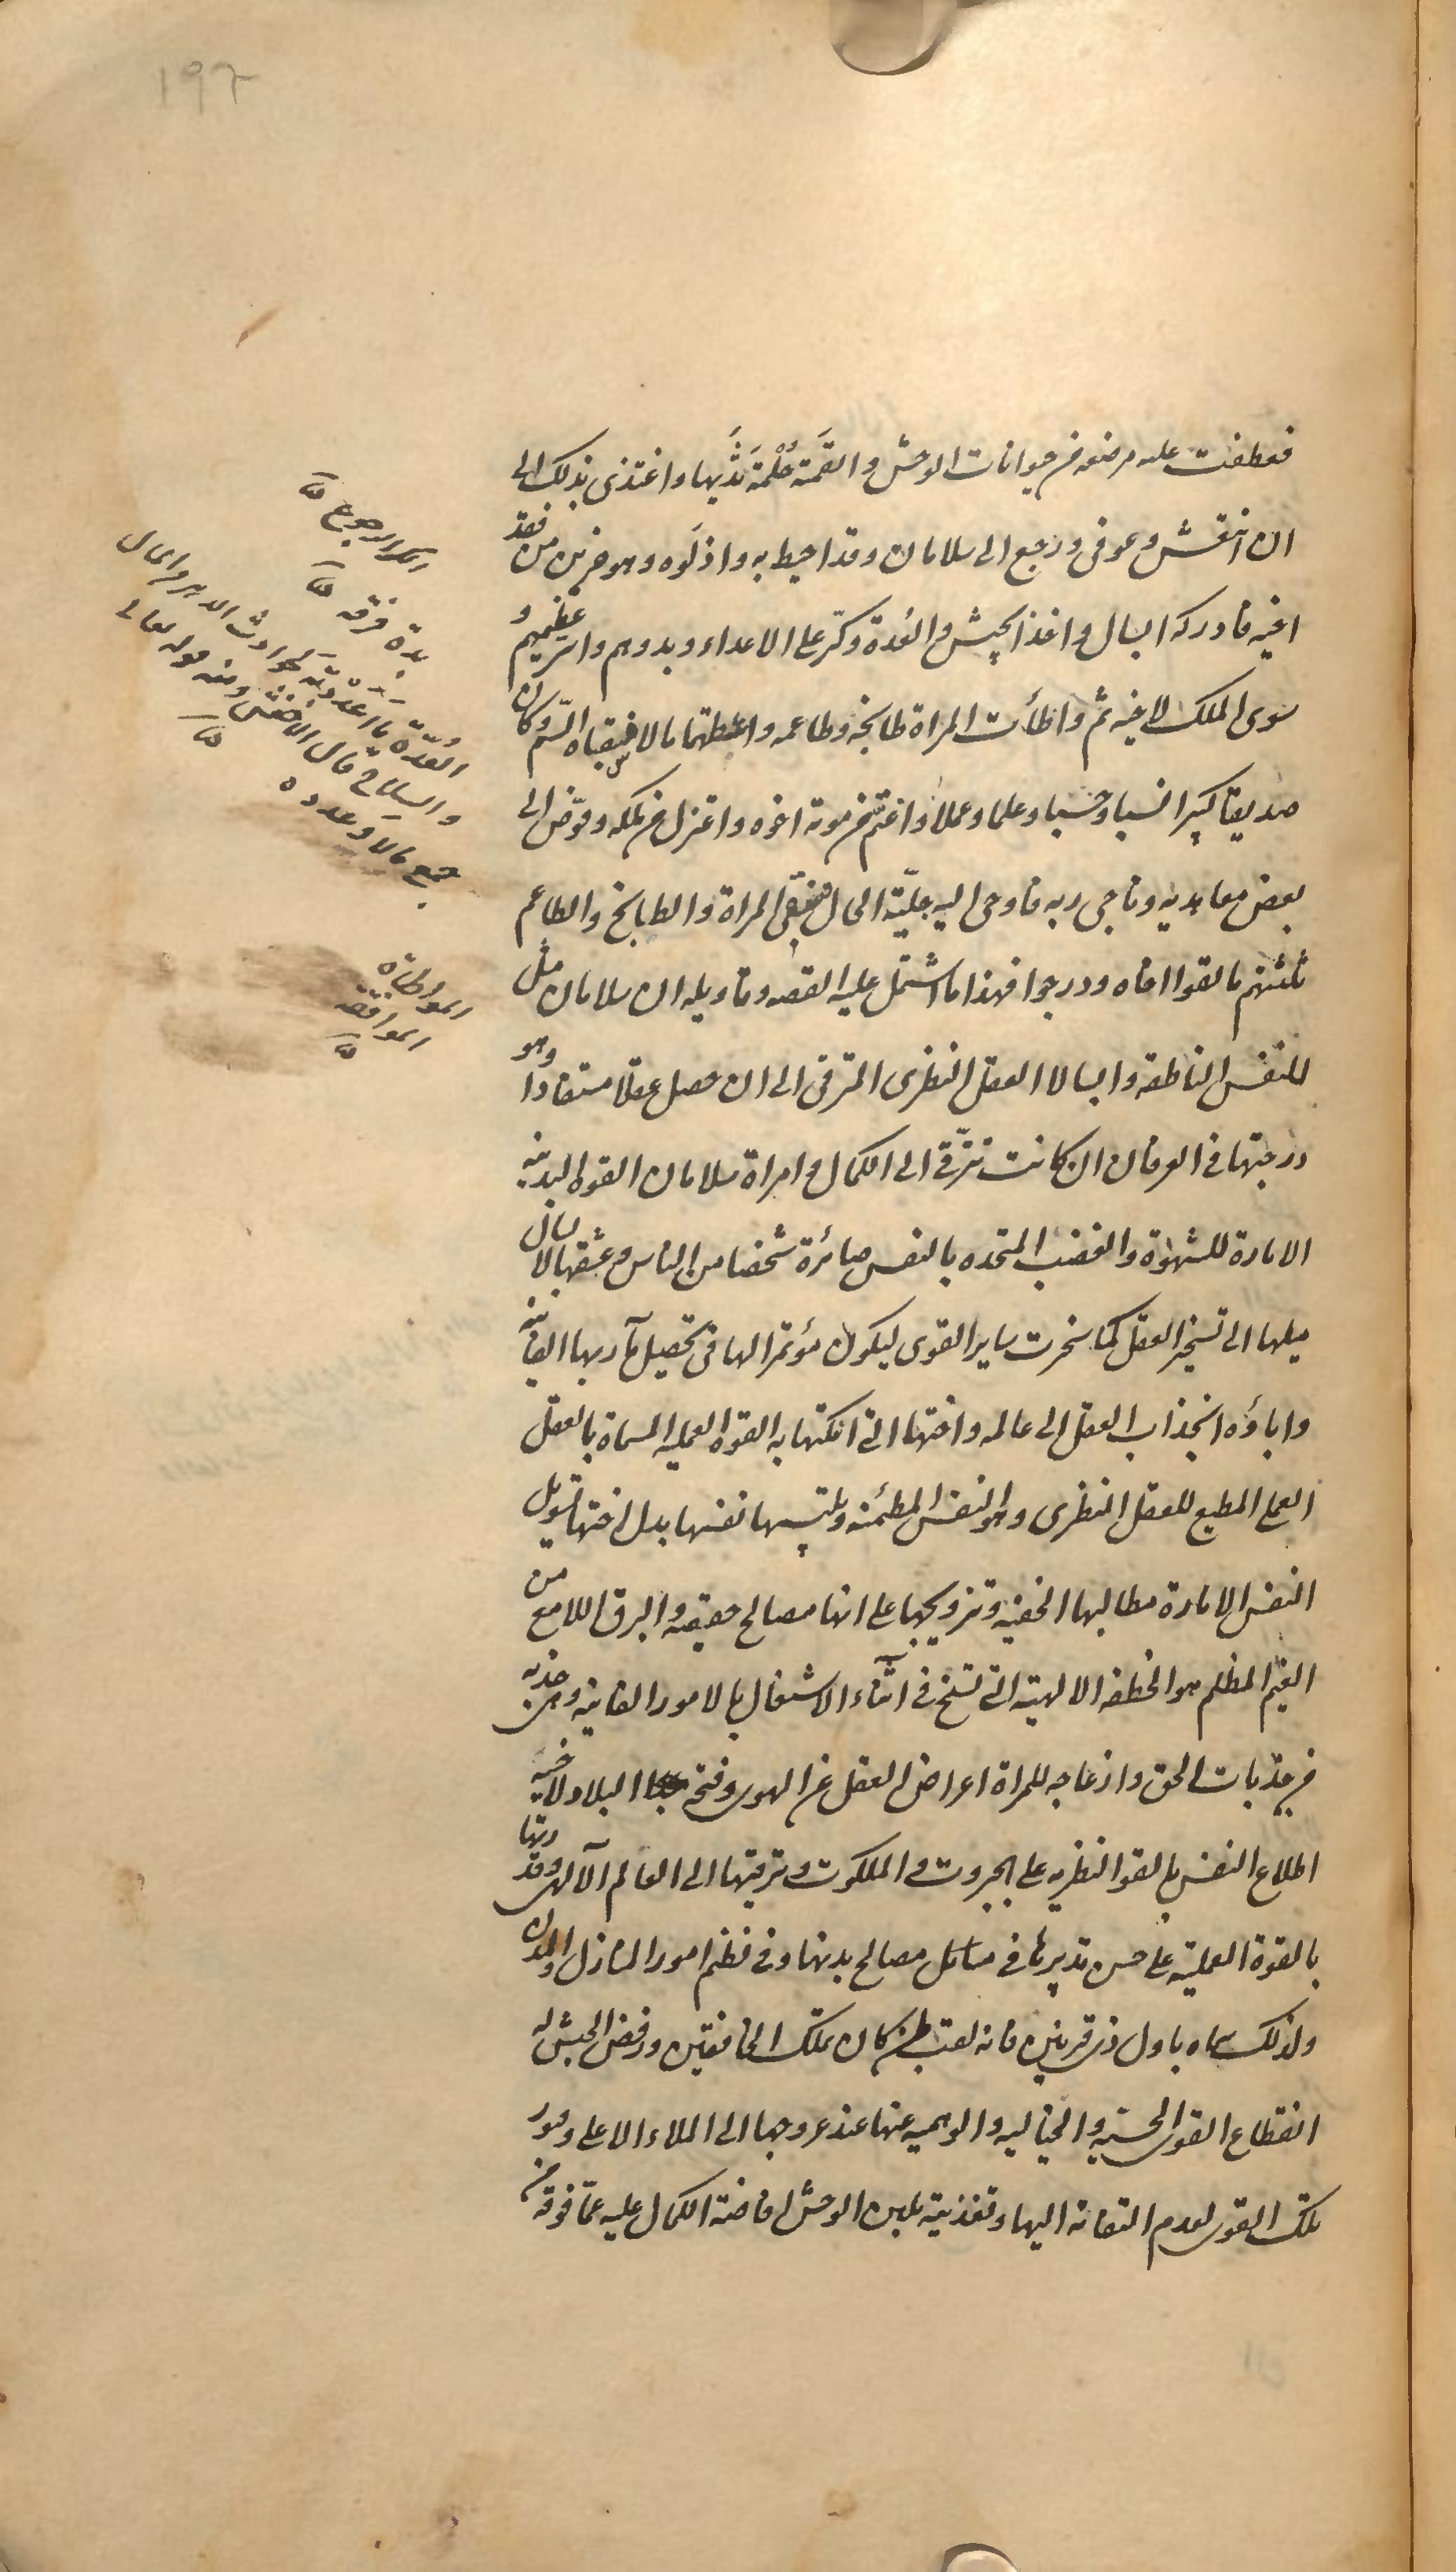 ۱۹۲
فعطفت عليه مرضعة من حيوانات الوحش والقمته حلمة ثديها واغتذى بذلك الى
ان انتعش وعوفى ورجع الى سلامان وقد احيط به واذلوه وهو حزين من فقد
اخيه فادركه ابسال واخذ الجيش والعدة وكر على الاعداء وبددهم واسر عظيمهم و
سوى الملك لاخيه ثم واطأت المراة طابخه وطاعمه واعطتهما مالا فسقياه السم وكان
صديقا كبيرا نسبا وحسبا وعلما وعملا واغتم من موته اخوه واعتزل من ملكه وفوض الى
بعض معاهديه وناجى ربه فاوحى اليه جلية الحال فسقى المراة والطابخ والطاعم
ثلثتهم ما سقوا اخاه ودرجوا فهذا ما اشتمل عليه القصة وتاويله ان سلامان مثل
للنفس الناطقة وابسالا العقل النظرى المترقى الى ان حصل عقلا مستفادا وهو
درجتها فى العرفان ان كانت تترقى الى الكمال وامراة سلامان القوة البدنية
الامارة للشهوة والغضب المتحدة بالنفس صائرة شخصا من الناس وعشقها لابسال
ميلها الى تسخير العقل كما سخرت ساير القوى ليكون مؤتمرا لها فى تحصيل مآربها الفانية
واباؤه انجذاب العقل الى عالمه واختها التى املكتها به القوة العملية المسماة بالعقل
العملى المطيع للعقل النظرى وهو النفس المطمئنة وتلبيسها نفسها بدل اختها تسويل
النفس الامارة مطالبها الخفية وترويجها على انها مصالح حقيقية والبرق اللامع من
الغيم المظلم هو الخطفة الالهية التى تسنح فى اثناء الاشتغال بالامور الفانية وهى جذبة
من جذبات الحق وازعاجه للمراة اعراض العقل عن الهوى وفتحه البلاد لاخيه
اطلاع النفس بالقوة النظرية على الجبروت والملكوت وترقيتها الى العالم الآلهى وقدرتها
بالقوة العملية على حسن تدبيرها فى مصالح بدنها وفى نظم امور المنازل والمدن
ولذلك سماه باول ذى قرنين فانه لقب لمن كان يملك الخافقين ورفض الجيش له
انقطاع القوى الحسية والخيالية والوهمية عنها عند عروجها الى الملاء الاعلى وفتور
تلك القوى لعدم التفاته اليها وتغذيته بلبن الوحش افاضة الكمال عليه عما فوقه من
الكر الرجوع
بدده فرقه
العدة ما اعددته لحوادث الدهر من المال
والسلاح قال الاخفش ومنه قوله تعالى
جمع مالا وعدده
المواطاة
الموافقة